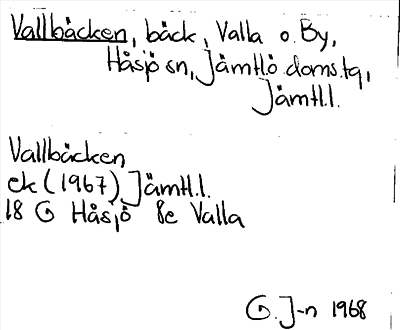 Vallbäcken, bäck, Valla o. By,
Håsjö sn, Jämtl.ö. doms.tq,
Jämtl.l.
Vallbäcken
ek (1967) Jämtl.l.
18 G Håsjö 8c Valla
G. J-n 1968